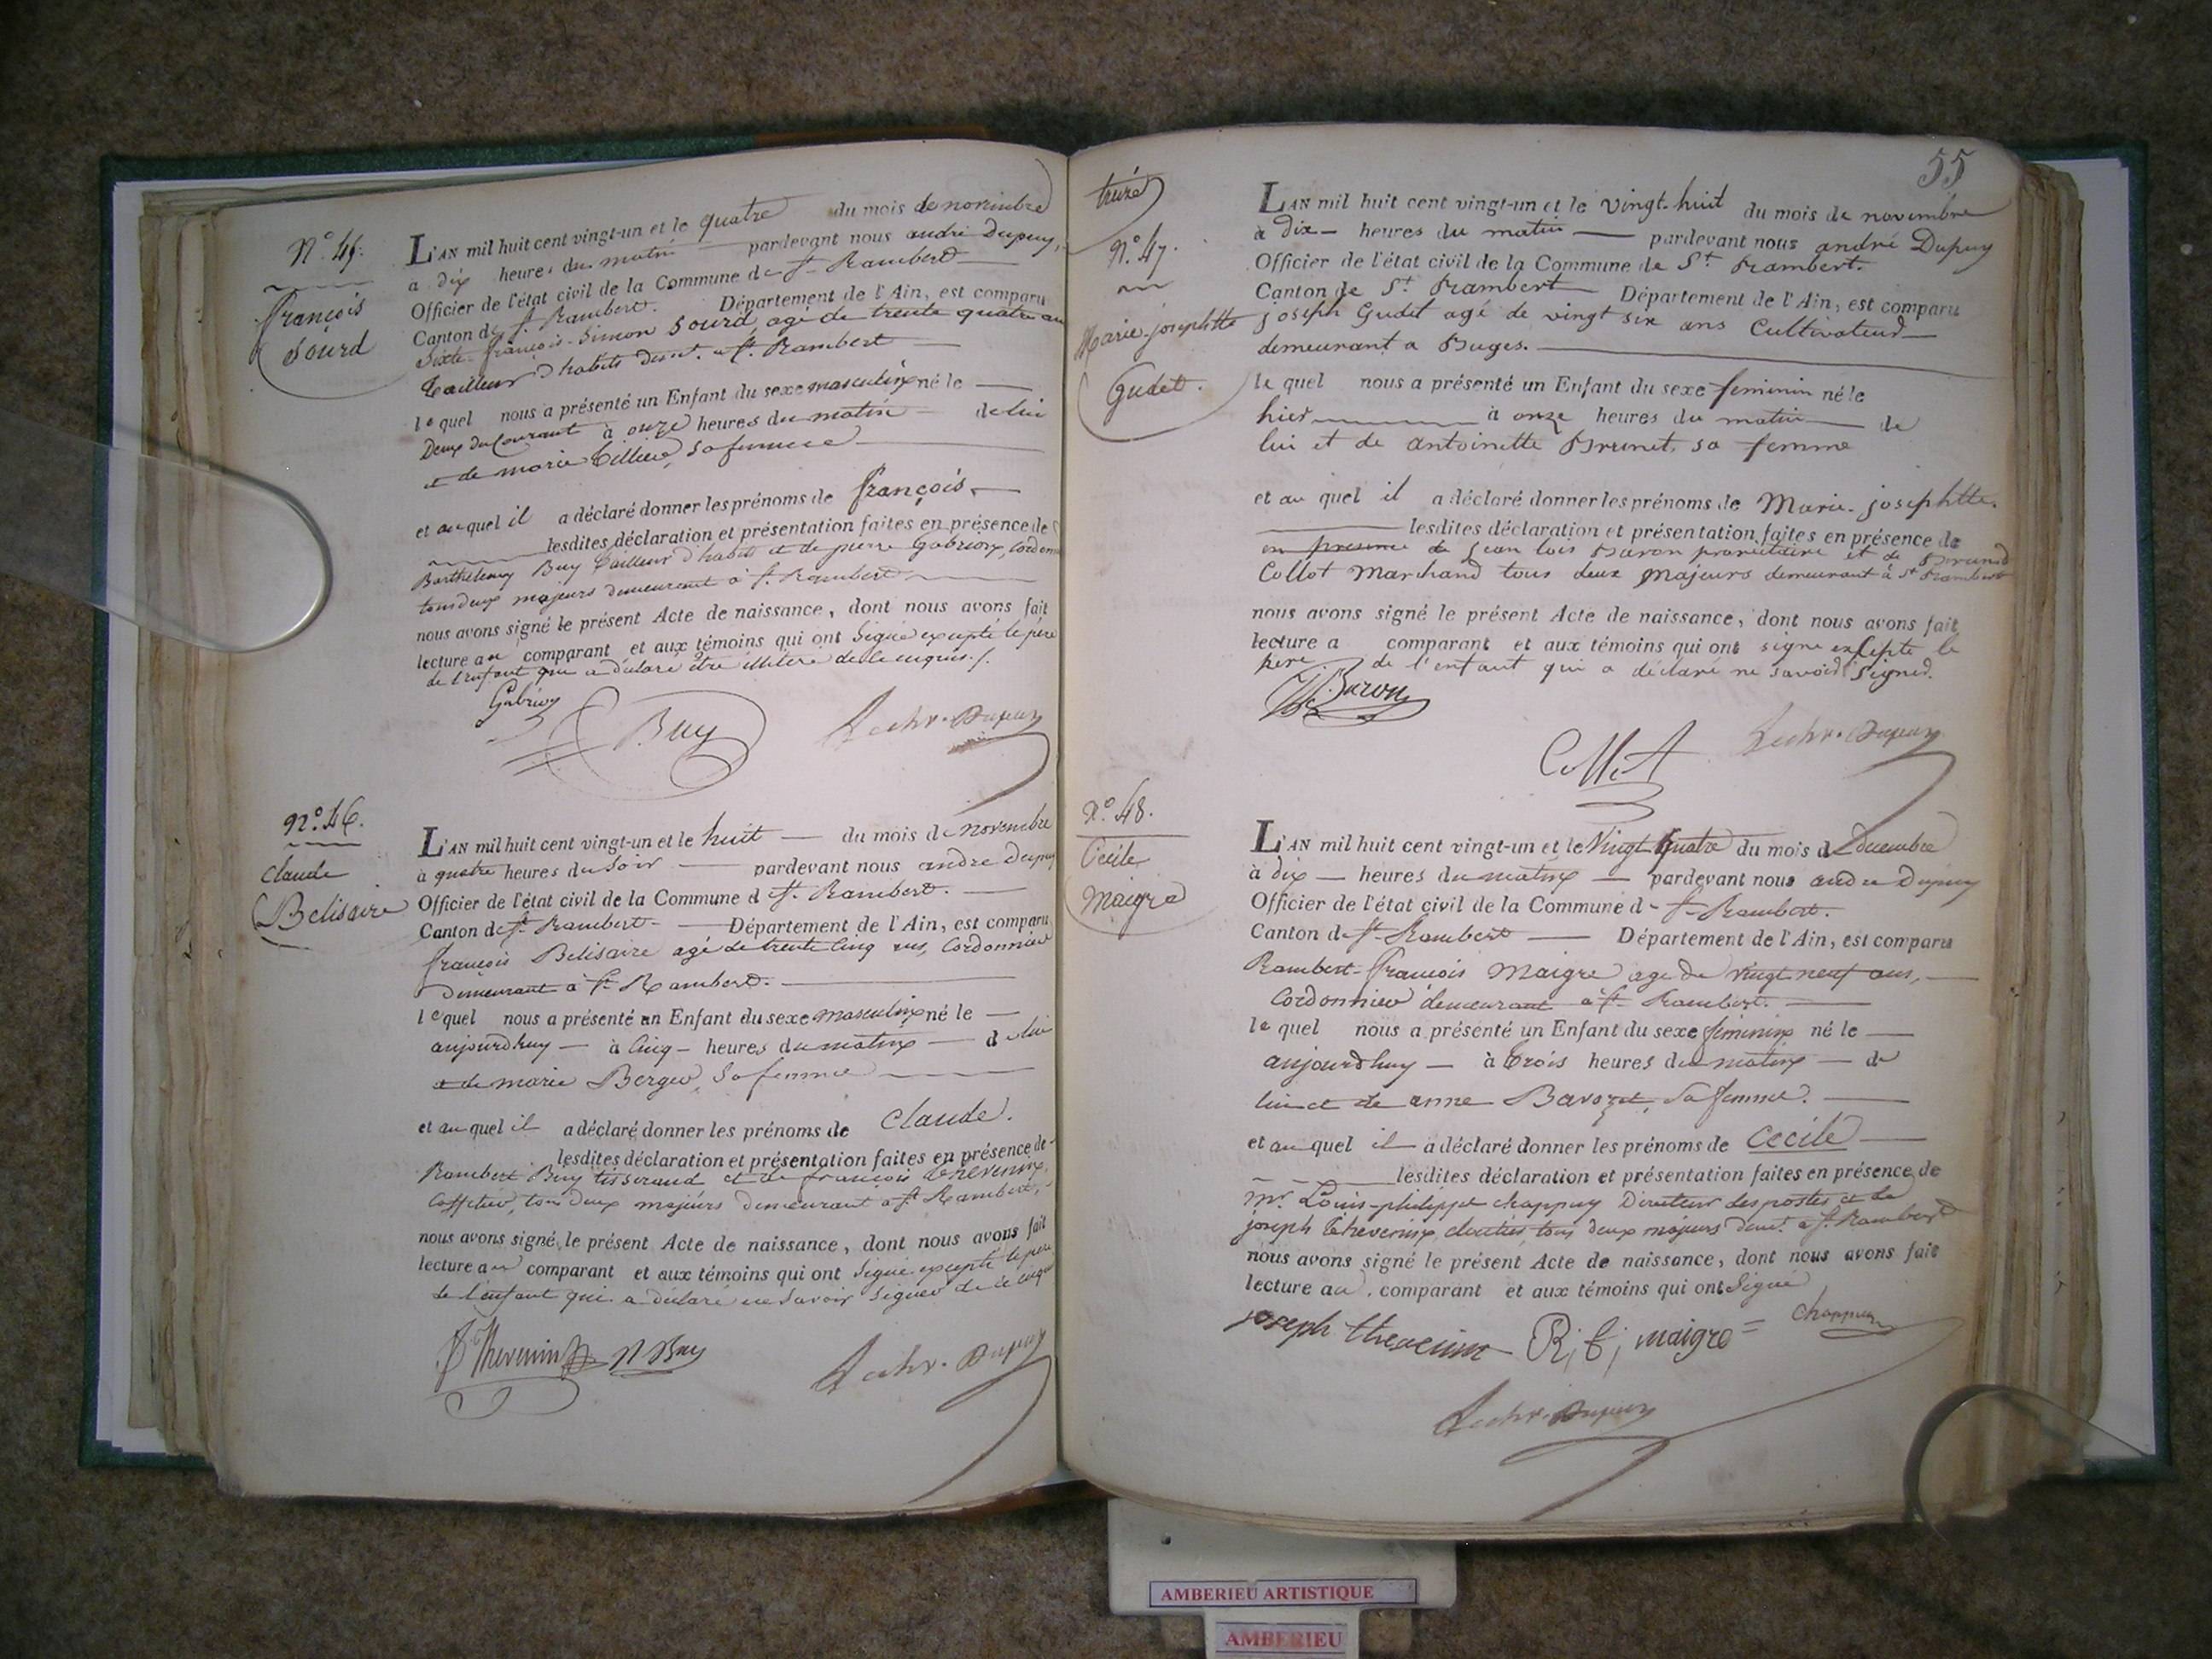 N.° 45.
françois
Sourd
L'AN mil huit cent vingt-un et le quatre du mois de novembre
a dix heures du matin pardevant nous andré Dupuy,
Officier de l'état civil de la Commune de St. Rambert
Canton de St. Rambert. Département de l'Ain, est comparu
françois-Simon Sourd, agé de trente quatre ans
Tailleur d'habits demt. a St. Rambert
lequel nous a présenté un Enfant du sexe masculin né le
Deux du Courant à onze heures du matin de lui
et de marie Sa femme
et au quel il a déclaré donner les prénoms de françois
lesdites déclaration et présentation faites en présence de
Barthelemy Buy Tailleur d'habits et de pierre Gabrion,
tous deux majeurs demeurant à St. Rambert
nous avons signé le présent Acte de naissance, dont nous avons fait
lecture au comparant et aux témoins qui ont Signé excepté le père
de l'enfant qui a déclaré être de ce enquis
Gabrion
Buy
Dupuy
N.° 46.
Claude
Belisaire
L'AN mil huit cent vingt-un et le huit du mois de novembre
à quatre heures du Soir pardevant nous andre dupuy
Officier de l'état civil de la Commune de St. Rambert.
Canton de St. Rambert Département de l'Ain, est comparu
françois Belisaire agé de trente Cinq ans, Cordonnier
demeurant à St. Rambert.
lequel nous a présenté un Enfant du sexe masculin né le
aujourdhuy à Cinq heures du matin de lui
et de marie Berger, Sa femme
et au quel il a déclaré donner les prénoms de Claude.
lesdites déclaration et présentation faites en présence de
Rambert Buy tisserand et de françois thevenin,
Caffetier, tous deux majeurs demeurant a St. Rambert,
nous avons signé le présent Acte de naissance, dont nous avons fait
lecture au comparant et aux témoins qui ont Signé excepté le père
de l'enfant qui a déclaré ne Savoir Signer de ce enquis
Thevenin Buy
Dupuy
55
N.° 47.
Marie-josephtte
Gudet.
L'AN mil huit cent vingt-un et le vingt-huit du mois de novembre
à dix heures du matin pardevant nous andré Dupuy
Officier de l'état civil de la Commune de St. Rambert.
Canton de St. Rambert Département de l'Ain, est comparu
joseph Gudet agé de vingt six ans Cultivateur
demeurant a Buges.
le quel nous a présenté un Enfant du sexe feminin né le
hier à onze heures du matin de
lui et de antoinette Brunet, sa femme
et au quel il a déclaré donner les prénoms de Marie-josephtte.
lesdites déclaration et présentation faites en présence de
en presence de jean lois Baron proprietaire et de
Collot Marchand tous deux majeurs demeurant à St Rambert
nous avons signé le présent Acte de naissance, dont nous avons fait
lecture a comparant et aux témoins qui ont signé excepte le
pere de l'enfant qui a déclaré ne savoir signer.
Baron
Collot
Dupuy
N.° 48.
Cecile
Maigre
L'AN mil huit cent vingt-un et le Vingt quatre du mois de Decembre
à dix heures du matin pardevant nous andre Dupuy
Officier de l'état civil de la Commune de St. Rambert.
Canton de St. Rambert Département de l'Ain, est comparu
Rambert-françois Maigre agé de vingt neuf ans,
Cordonnier demeurant à St. Rambert.
le quel nous a présenté un Enfant du sexe feminin né le
aujourdhuy à trois heures du matin de
lui et de anne Bavozet, Sa femme.
et au quel il a déclaré donner les prénoms de Cecile
lesdites déclaration et présentation faites en présence de
Mr. Louis-philippe chappuy Directeur des postes et de
joseph thevenin, cloutier tous deux majeurs demt. a St. Rambert
nous avons signé le présent Acte de naissance, dont nous avons fait
lecture au comparant et aux témoins qui ont Signé
joseph thevenin R, f, maigre chappuy
Dupuy
AMBERIEU ARTISTIQUE
AMBERIEU